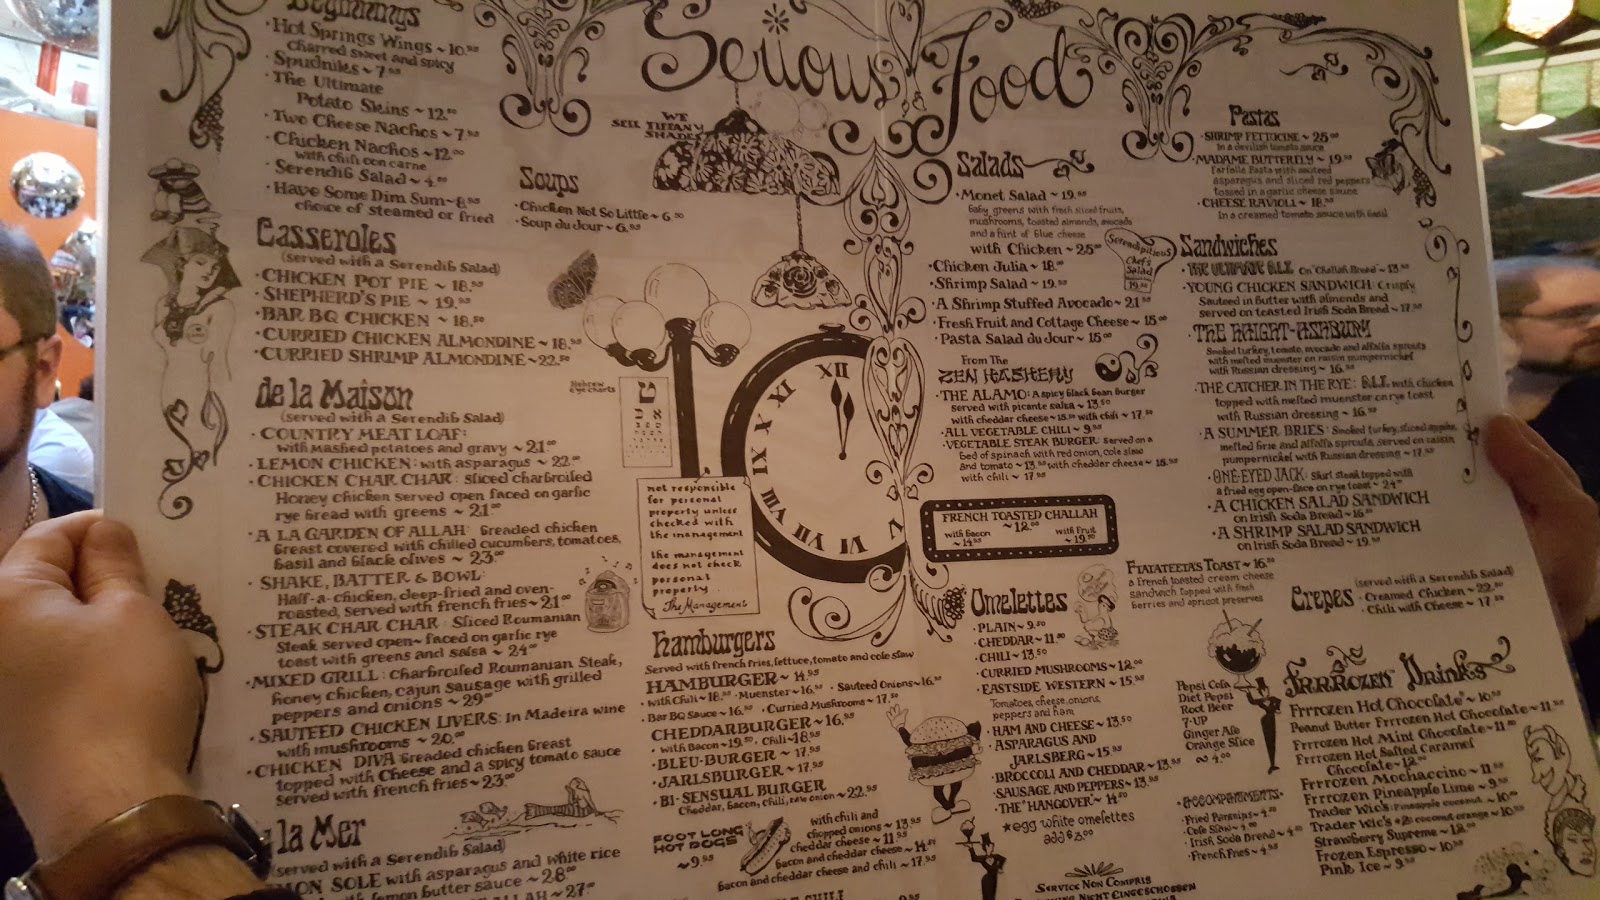 Beginnings
Hot Springs Wings ~ 10.95
Charred sweet and spicy
Spudniks ~ 7.95
The Ultimate
Potato Skins ~ 12.00
Two Cheese Nachos ~ 7.50
Chicken Nachos ~ 12.00
with chili con carne
Serendib Salad ~ 4.00
Have Some Dim Sum ~ 8.95
choice of steamed or fried
Casseroles
(served with a Serendib Salad)
CHICKEN POT PIE ~ 18.95
SHEPHERD'S PIE ~ 19.50
BAR BQ CHICKEN ~ 18.50
CURRIED CHICKEN ALMONDINE ~ 18.95
CURRIED SHRIMP ALMONDINE ~ 22.50
de la Maison
(served with a Serendib Salad)
COUNTRY MEAT LOAF:
with mashed potatoes and gravy ~ 21.00
LEMON CHICKEN: with asparagus ~ 22.00
CHICKEN CHAR CHAR: Sliced charbroiled
Honey chicken served open faced on garlic
rye bread with greens ~ 21.00
A LA GARDEN OF ALLAH: Breaded chicken
breast covered with chilled cucumbers, tomatoes,
basil and black olives ~ 23.00
SHAKE, BATTER & BOWL:
Half-a-chicken, deep-fried and oven-
roasted, Served with french fries ~ 21.00
STEAK CHAR CHAR: Sliced Roumanian
Steak served open-faced on garlic rye
toast with greens and salsa ~ 24.00
MIXED GRILL: Charbroiled Roumanian Steak,
honey chicken, cajun sausage with grilled
peppers and onions ~ 29.00
SAUTEED CHICKEN LIVERS: In Madeira wine
with mushrooms ~ 20.00
CHICKEN DIVA Breaded chicken breast
topped with Cheese and a spicy tomato sauce
served with french fries ~ 23.00
la Mer
(served with a Serendib Salad)
SOLE with asparagus and white rice
with lemon butter sauce ~ 28.00
ALLAH ~ 27.00
Serious Food
WE
SELL TIFFANY
SHADES
Soups
Chicken Not So Little ~ 6.50
Soup du Jour ~ 6.95
Hebrew
eye charts
XII
XI
X
IX
VIII
VII
VI
V
not responsible
for personal
property unless
checked with
the management
the management
does not check
personal
property
The Management
Hamburgers
Served with french fries, lettuce, tomato and cole slaw
HAMBURGER ~ 14.95
with Chili ~ 18.50 · Muenster ~ 16.95 · Sauteed Onions ~ 16.50
Bar BQ Sauce ~ 16.50 · Curried Mushrooms ~ 17.50
CHEDDARBURGER ~ 16.95
with Bacon ~ 19.50 · Chili ~ 18.95
BLEU-BURGER ~ 17.95
JARLSBURGER ~ 17.95
BI-SENSUAL BURGER
Cheddar, bacon, chili, raw onion ~ 22.95
FOOT LONG
HOT DOGS
~ 9.95
with chili and
chopped onions ~ 13.95
cheddar cheese ~ 11.95
bacon and cheddar cheese ~ 14.50
bacon and cheddar cheese and chili ~ 17.95
CHILI
Salads
Monet Salad ~ 19.95
Baby greens with fresh sliced fruits,
mushrooms, toasted almonds, avocado
and a hint of blue cheese
with Chicken ~ 25.00
Chicken Julia ~ 18.00
Shrimp Salad ~ 19.50
A Shrimp Stuffed Avocado ~ 21.50
Fresh Fruit and Cottage Cheese ~ 15.00
Pasta Salad du Jour ~ 15.00
Serendipitous
Chef's
Salad
19.50
From The
ZEN HASHERY
THE ALAMO: A spicy black bean burger
served with picante salsa ~ 13.50
with cheddar cheese ~ 18.50 with chili ~ 17.50
ALL VEGETABLE CHILI ~ 9.50
VEGETABLE STEAK BURGER: Served on a
bed of spinach with red onion, cole slaw
and tomato ~ 13.50 with cheddar cheese ~ 18.50
with chili ~ 17.95
FRENCH TOASTED CHALLAH
~ 12.00
with Bacon
~ 14.95
with Fruit
~ 19.50
Omelettes
PLAIN ~ 9.50
CHEDDAR ~ 11.50
CHILI ~ 13.50
CURRIED MUSHROOMS ~ 12.00
EASTSIDE WESTERN ~ 15.95
Tomatoes, cheese, onions,
peppers and ham
HAM AND CHEESE ~ 13.50
ASPARAGUS AND
JARLSBERG ~ 15.95
BROCCOLI AND CHEDDAR ~ 13.95
SAUSAGE AND PEPPERS ~ 13.95
THE "HANGOVER" ~ 14.50
*egg white omelettes
add $3.00
SERVICE NON COMPRIS
NICHT EINGESCHOSSEN
Pastas
SHRIMP FETTUCINE ~ 25.00
In a devilish tomato sauce
MADAME BUTTERFLY ~ 19.50
Farfalle Pasta with sauteed
asparagus and sliced red peppers
tossed in a garlic cheese sauce
CHEESE RAVIOLI ~ 18.50
In a creamed tomato sauce with basil
Sandwiches
THE ULTIMATE B.L.T. On "Challah Bread" ~ 13.50
YOUNG CHICKEN SANDWICH: Crisply
Sauteed in butter with almonds and
served on toasted Irish Soda Bread ~ 17.50
THE HAIGHT-ASHBURY
Smoked turkey, tomato, avocado and alfalfa sprouts
with melted muenster on raisin pumpernickel
with Russian dressing ~ 16.50
THE CATCHER IN THE RYE: B.L.T. with chicken
topped with melted muenster on rye toast
with Russian dressing ~ 16.50
A SUMMER BRIES: Smoked turkey, sliced apples,
melted brie and alfalfa sprouts, served on raisin
pumpernickel with Russian dressing ~ 17.50
ONE-EYED JACK: Skirt steak topped with
a fried egg open-face on rye toast ~ 24.00
A CHICKEN SALAD SANDWICH
on Irish Soda Bread ~ 16.50
A SHRIMP SALAD SANDWICH
on Irish Soda Bread ~ 19.50
FIATATEETA'S TOAST ~ 16.50
a French toasted cream cheese
sandwich topped with fresh
berries and apricot preserves
Crepes
(served with a Serendib Salad)
Creamed Chicken ~ 22.50
Chili with Cheese ~ 17.50
Pepsi Cola
Diet Pepsi
Root Beer
7-UP
Ginger Ale
Orange Slice
~ 4.00
ACCOMPANIMENTS
Fried Parsnips ~ 4.50
Cole Slaw ~ 4.00
Irish Soda Bread ~ 4.00
French Fries ~ 4.95
Frrrozen Drinks
Frrrozen Hot Chocolate ~ 10.50
Peanut Butter Frrrozen Hot Chocolate ~ 11.50
Frrrozen Hot Mint Chocolate ~ 11.50
Frrrozen Hot Salted Caramel
Chocolate ~ 12.00
Frrrozen Mochaccino ~ 11.95
Frrrozen Pineapple Lime ~ 9.50
Trader Wic's: Pineapple coconut ~ 10.00
Trader Wic's #2: coconut orange ~ 10.50
Strawberry Supreme ~ 12.00
Frozen Espresso ~ 10.50
Pink Ice ~ 9.50